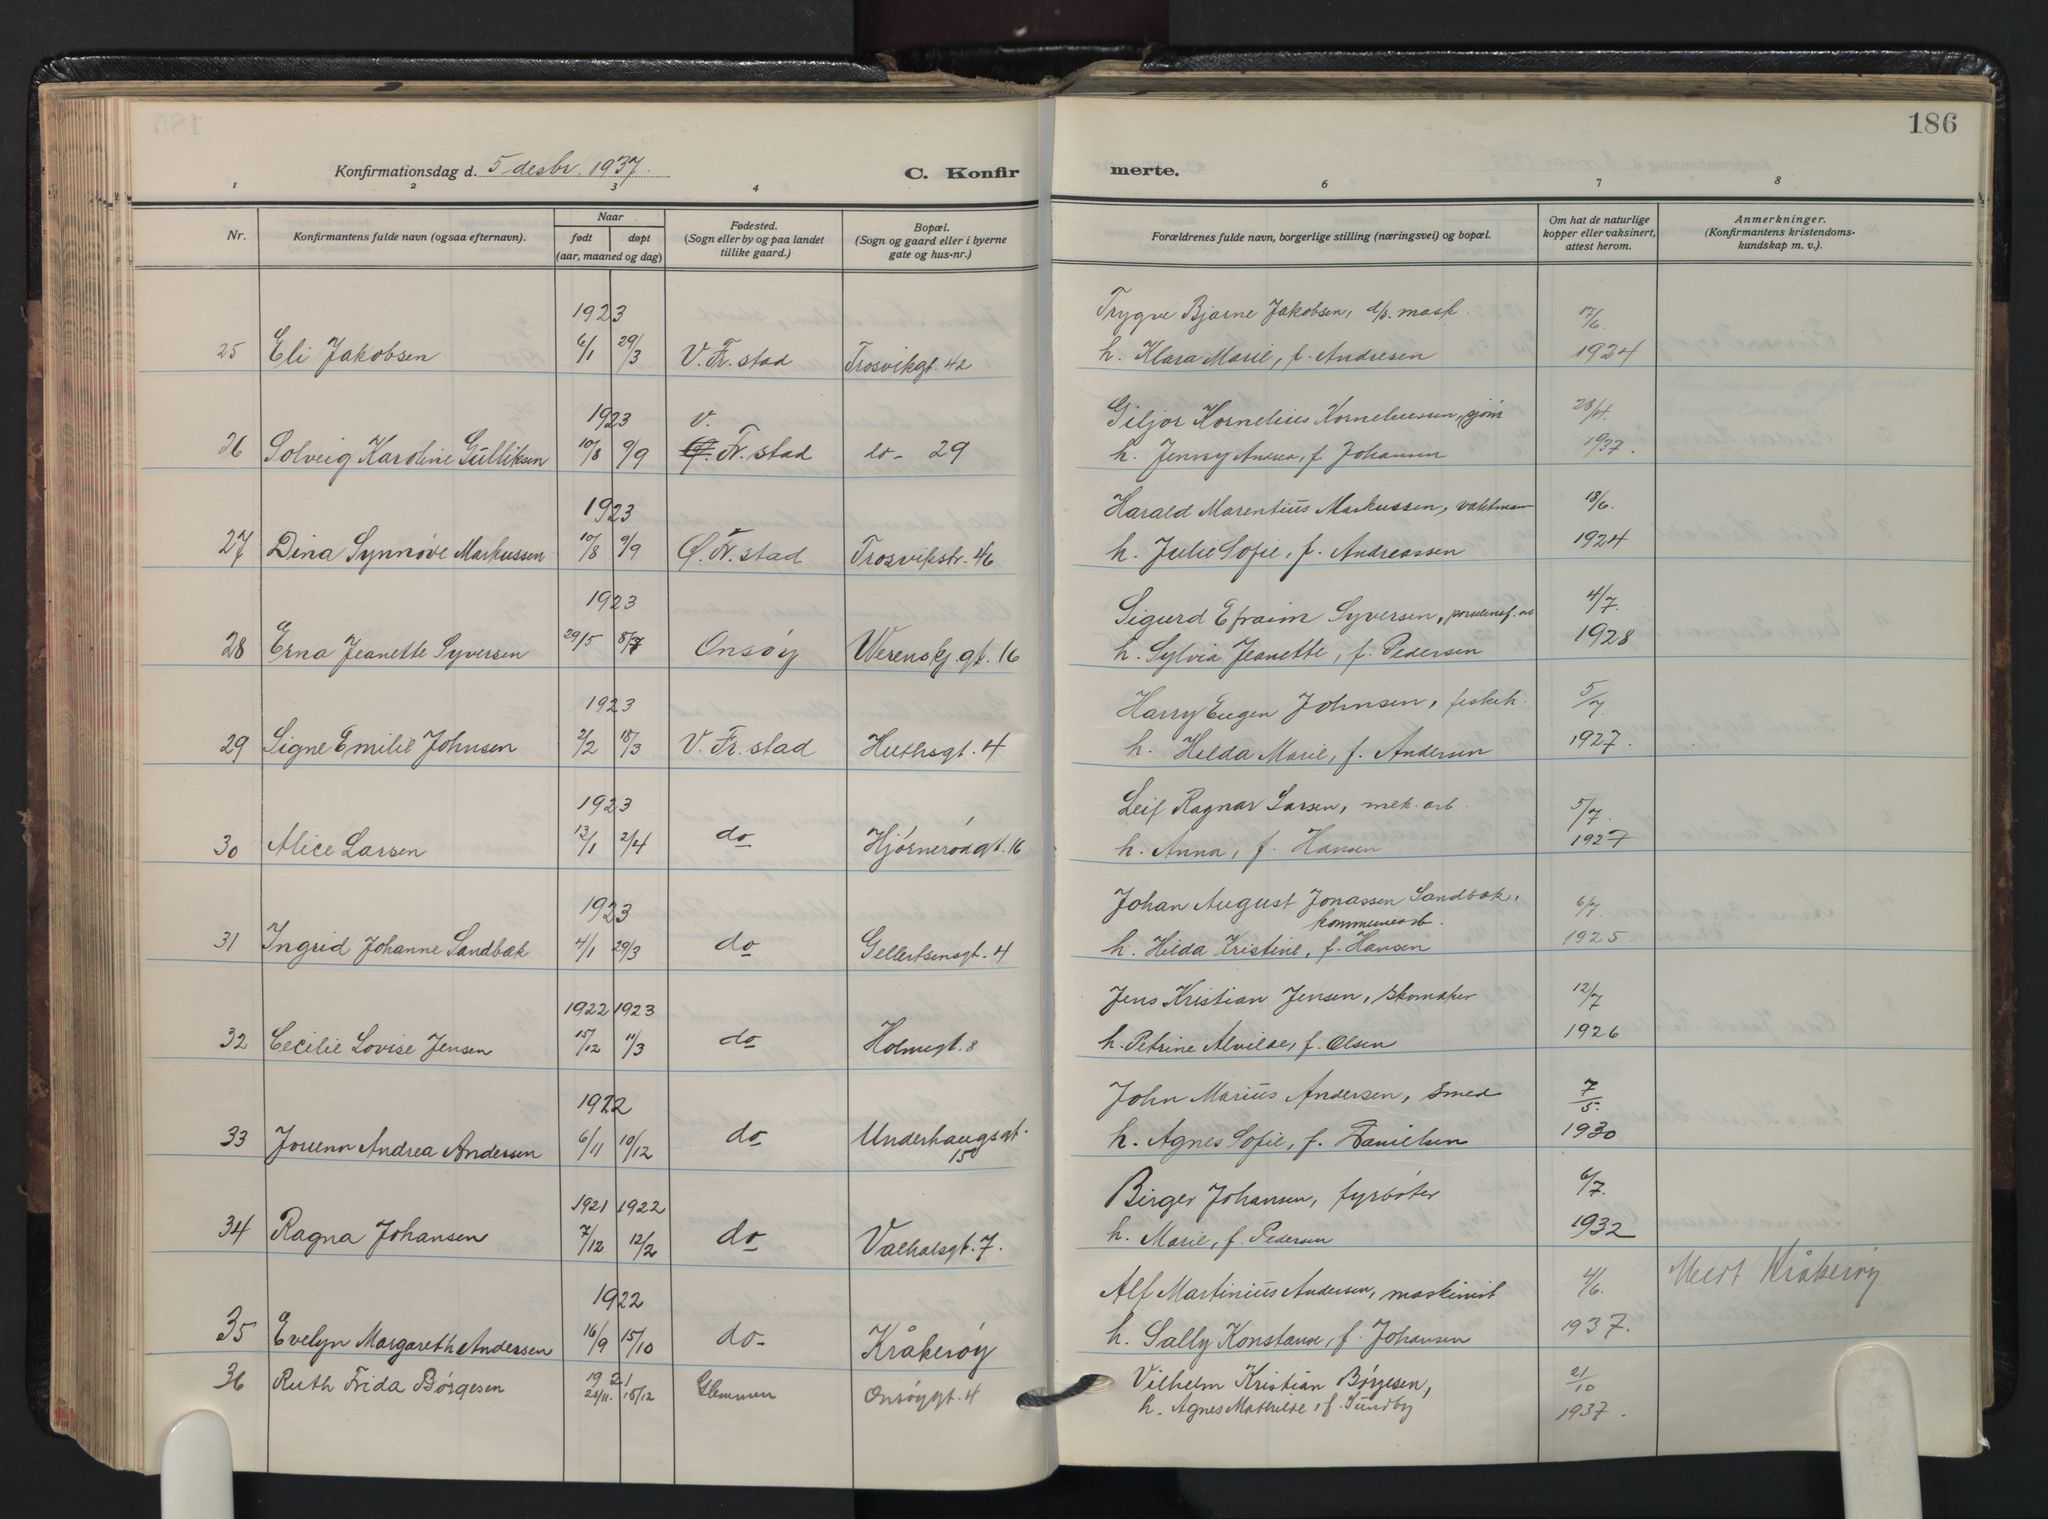 186
Konfirmationsdag d. 5 desbr. 1937.
C. Konfirmerte.
1 2 3 4 6 7 8
Nr.
Konfirmantens fulde navn (ogsaa efternavn).
Naar
født døpt
(aar, maaned og dag)
Fødested.
(Sogn eller by og paa landet
tillike gaard.)
Bopæl.
(Sogn og gaard eller i byerne
gate og hus-nr.)
Forældrenes fulde navn, borgerlige stilling (næringsvei) og bopæl.
Om hat de naturlige
kopper eller vaksinert,
attest herom.
Anmerkninger.
(Konfirmantens kristendoms-
kundskap m. v.).
1923 Trygve Bjarne Jakobsen, d/s. mask. 17/6.
25 Eli Jakobsen 6/1 29/3 V. Fr. stad Trosvikgt. 42 h. Klara Marie, f. Andresen 1924
1923 V. Kornelius 28/4.
26 Solveig Karoline Gulliksen 10/8 9/9 Fr. stad do- 29 h. Jenny Andrea, f. Johansen 1937.
1923 Harald Marentius Markussen, vaktman 18/6.
27 Dina Synnøve Markussen 10/8 9/9 Ø. Fr. stad Trosvikstr. 46 h. Julie Sofie, f. Andreassen 1924
1923 Sigurd Efraim Syversen, porselensf. arb 4/7.
28 Erna Jeanette Syversen 29/5 8/7 Onsøy Werenskj.gt. 16 h. Sylvia Jeanette, f. Pedersen 1928
1923 Harry Eugen Johnsen, fiskeh. 5/7.
29 Signe Emilie Johnsen 2/2 18/3 V. Fr. stad Huthsgt. 4 h. Hilda Marie, f. Andersen 1927.
1923 Leif Ragnar Larsen, mek. arb. 5/7.
30 Alice Larsen 13/1 2/4 do Hjørnerødgt. 16 h. Anna, f. Hansen 1927
1923 Johan August Jonassen Sandbæk, 6/7
kommunearb.
31 Ingrid Johanne Sandbæk 4/1 29/3 do Gellertsensgt. 4 h. Hilda Kristine, f. Hansen 1925
1922 1923 Jens Kristian Jensen, skomaker 12/7
32 Cecilie Lovise Jensen 15/12 11/3 do Holmegt. 8 h. Petrine Alvilde, f. Olsen 1926
1922 John Marius Andersen, smed 7/5.
33 Andrea Andersen 6/11 10/12 do Underhaugsgt. 15 h. Agnes Sofie, f. Danielsen 1930
1921 1922 Birger Johansen, fyrbøter 6/7.
34 Ragna Johansen 7/12 12/2 do Valhalsgt. 7. h. Marie, f. Pedersen 1932
1922 Alf Martinius Andersen, maskinist 4/6. Kråkerøy
35 Evelyn Margarethe Andersen 16/9 15/10 do- Kråkerøy h. Sally Konstanse, f. Johansen 1937.
1921 Vilhelm Kristian Børgesen, 21/10
36 Ruth Frida Børgesen 18/12 Glemmen Onsøygt. 4 h. Agnes Mathilde, f. Sundby 1937.